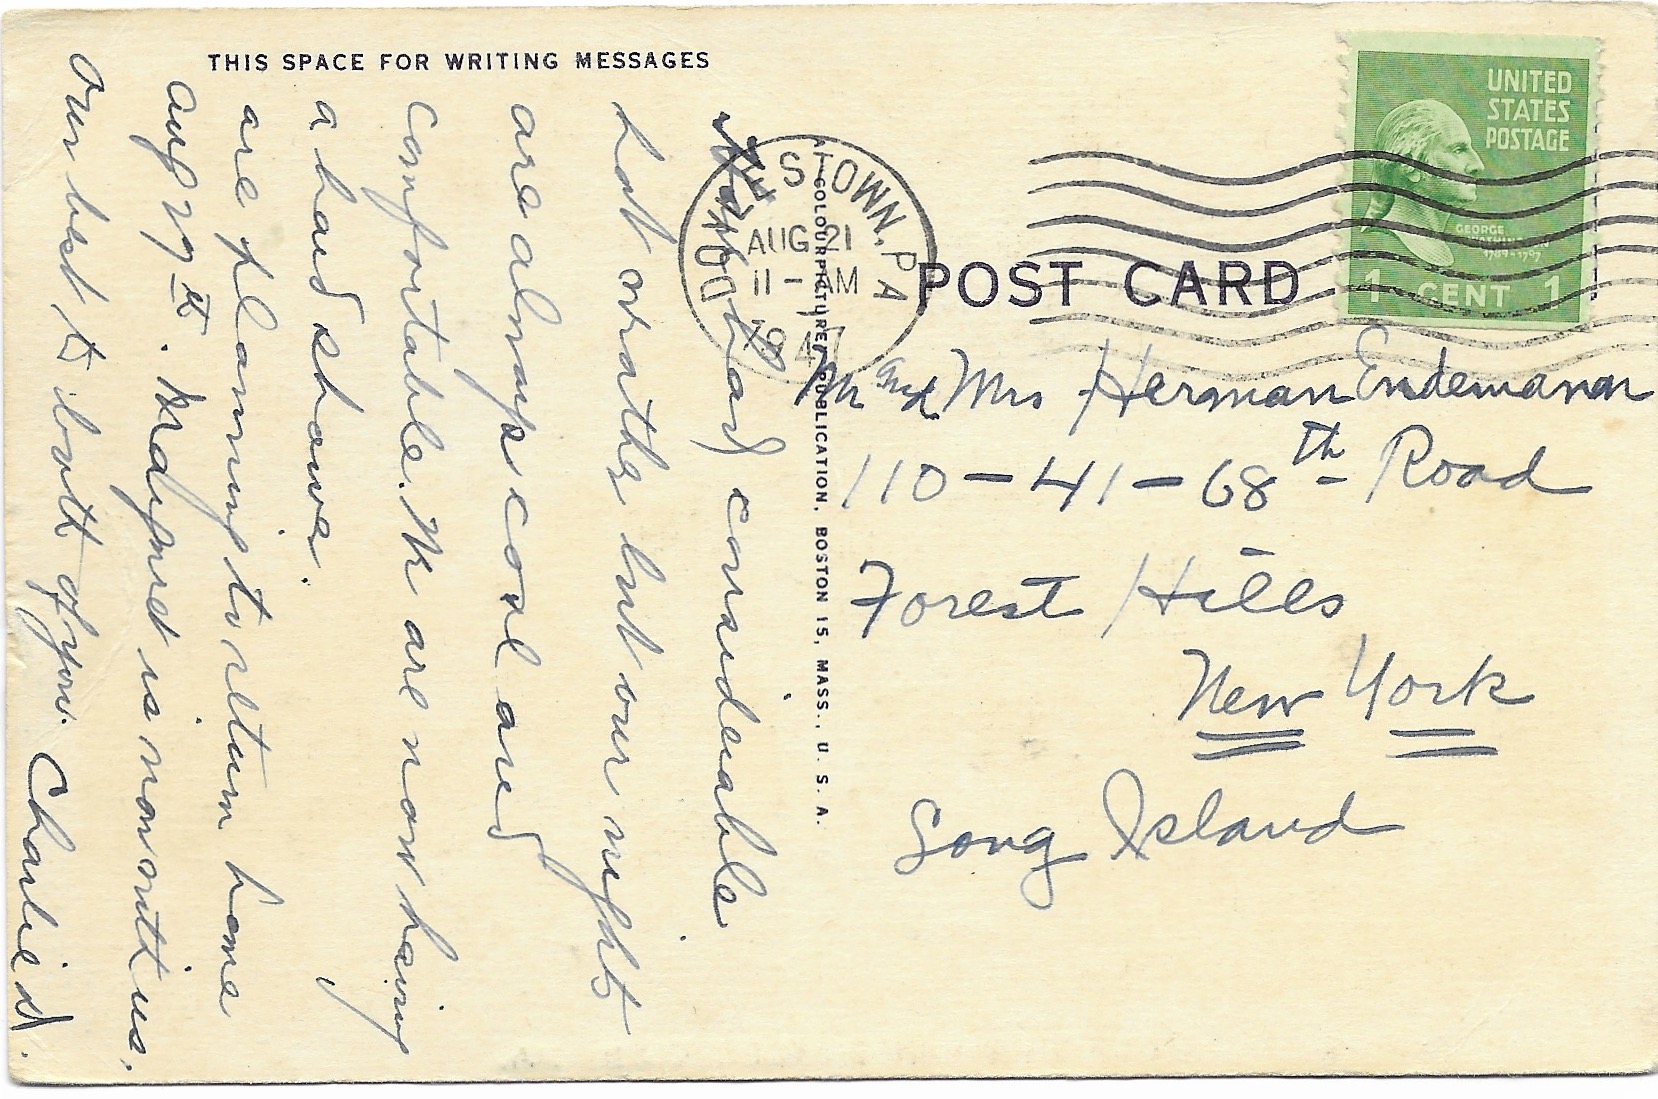 THIS SPACE FOR WRITING MESSAGES
Have had considerable
hot weather but our nights
are always cool and
comfortable. We are now having
a hard shower.
are planning to return home
Aug 29th. Margaret is now with us.
Our best to both of you. Charlie
A COLOURPICTURE PUBLICATION, BOSTON 15, MASS., U. S. A.
DOYLESTOWN, PA
AUG 21
11 - AM
1947
POST CARD
UNITED
STATES
POSTAGE
GEORGE
WASHINGTON
1789-1797
1 CENT 1
Mr and Mrs Herman Endemann
110 - 41 - 68th Road
Forest Hills
New York
Long Island